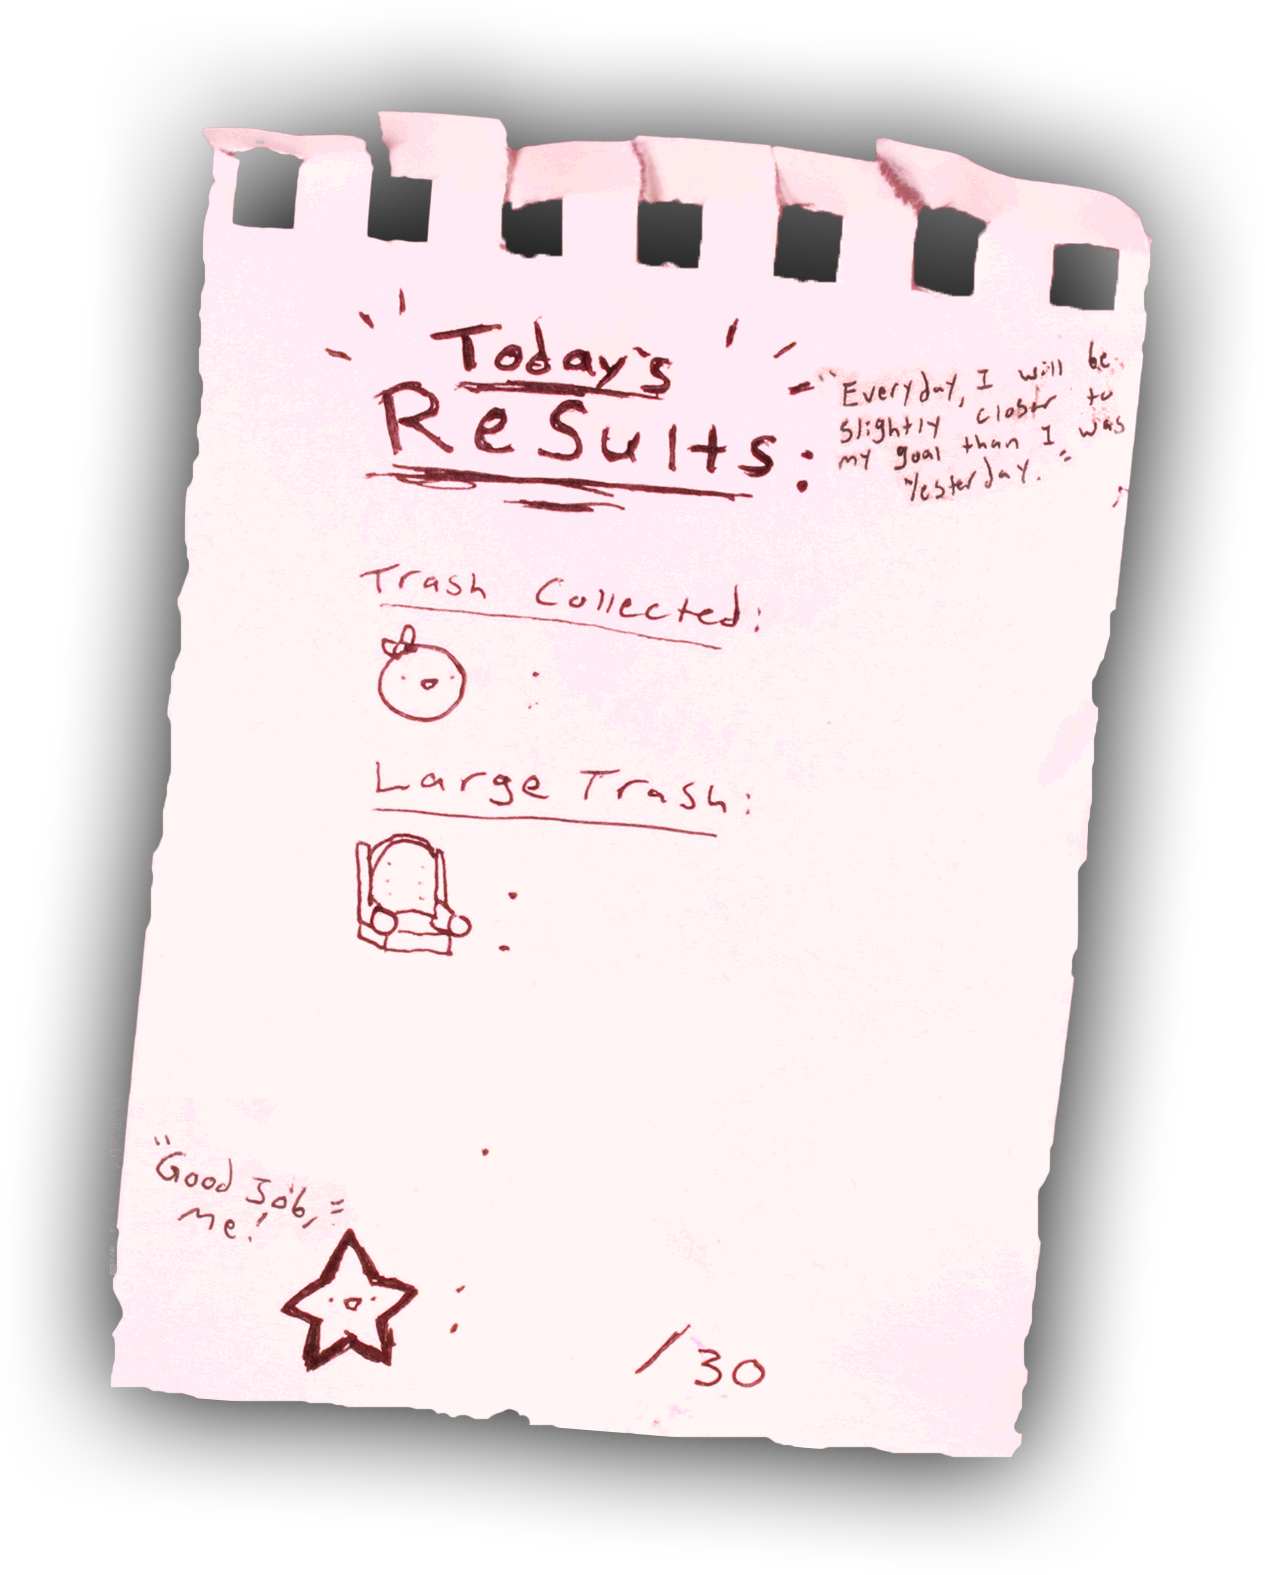 Today's
Results:
"Everyday, I will be
slightly closer to
my goal than I was
Yesterday."
Trash Collected:
:
Large Trash:
:
"Good Job,"
me!
:
/30